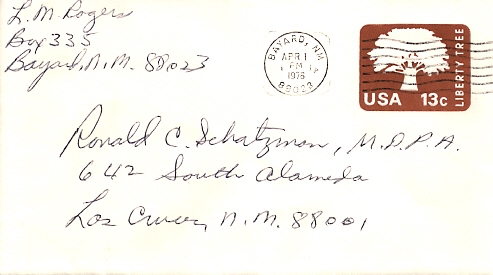 L. M. Rogers
Box 335
Bayard, N.M. 88023
BAYARD, NM
APR 1
PM
1976
88023
USA 13c
LIBERTY TREE
Ronald C. Schatzman, M.D.P.A.
642 South Alameda
Las Cruces, N.M. 88001